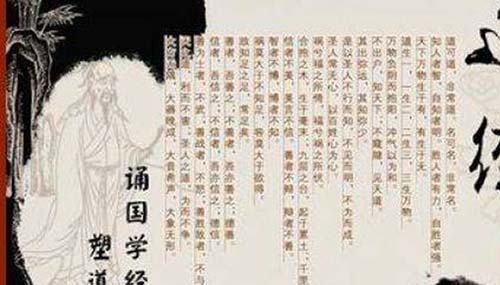 经
道可道，非常道。名可名，非常名。
知人者智，自知者明。胜人者有力，自胜者强。
天下万物生于有，有生于无。
道生一，一生二，二生三，三生万物。
万物负阴而抱阳，冲气以为和。
不出户，知天下，不窥牖，见天道。
其出弥远，其知弥少
是以圣人不行而知，不见而明，不为而成。
圣人常无心，以百姓心为心
祸兮福之所倚，福兮祸之所伏。
合抱之木，生于毫末，九层之台，起于累土，千里
信者不美，美言不信，善者不辩，辩者不善。
智者不博，博者不知。
祸莫大于不知足，咎莫大于欲得。
故知足之足，常足矣。
善者，吾善之，不善者，吾亦善之，德善。
信者，吾信之，不信者，吾亦信之，德信。
善为士者，不武，善战者，不怒，善胜敌者，不与
利而不害，圣人之道，为而不争。
大器晚成，大音希声，大象无形。
诵国学经
塑道